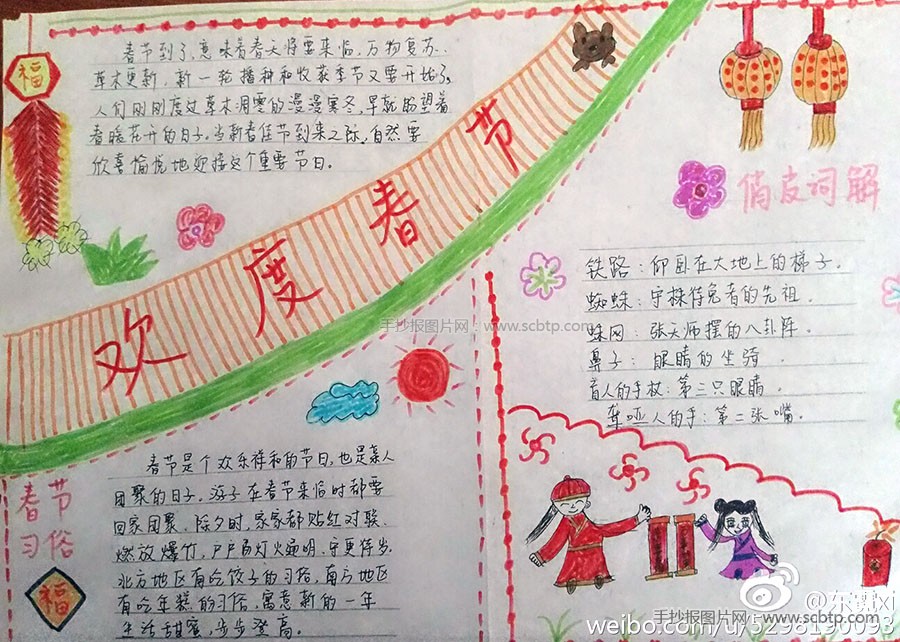 福
春节到了，意味着春天将要来临，万物复苏，
草木更新，新一轮播种和收获季节又要开始了。
人们刚刚度过草木凋零的漫漫寒冬，早就盼望着
春暖花开的日子。当新春佳节到来之际，自然要
欣喜愉悦地迎接这个重要节日。
欢度春节
俏皮词解
铁路：仰面在大地上的梯子。
蜘蛛：守株待兔者的先祖。
蛛网：张天师摆的八卦阵。
鼻子：眼睛的坐骑。
盲人的手杖：第三只眼睛
哑人的手：第二张嘴。
手抄报图片网：www.scbtp.com
春节
习俗
福
春节是个欢乐祥和的节日，也是亲人
团聚的日子。游子在春节来临时都要
回家团聚。除夕时，家家都贴红对联，
燃放爆竹，户户灯火通明，守更待岁。
北方地区有吃饺子的习俗，南方地区
有吃年糕的习俗，寓意新的一年
生活甜蜜，步步登高。
手抄报图片网：www.scbtp.com
weibo.com/u/5296190093